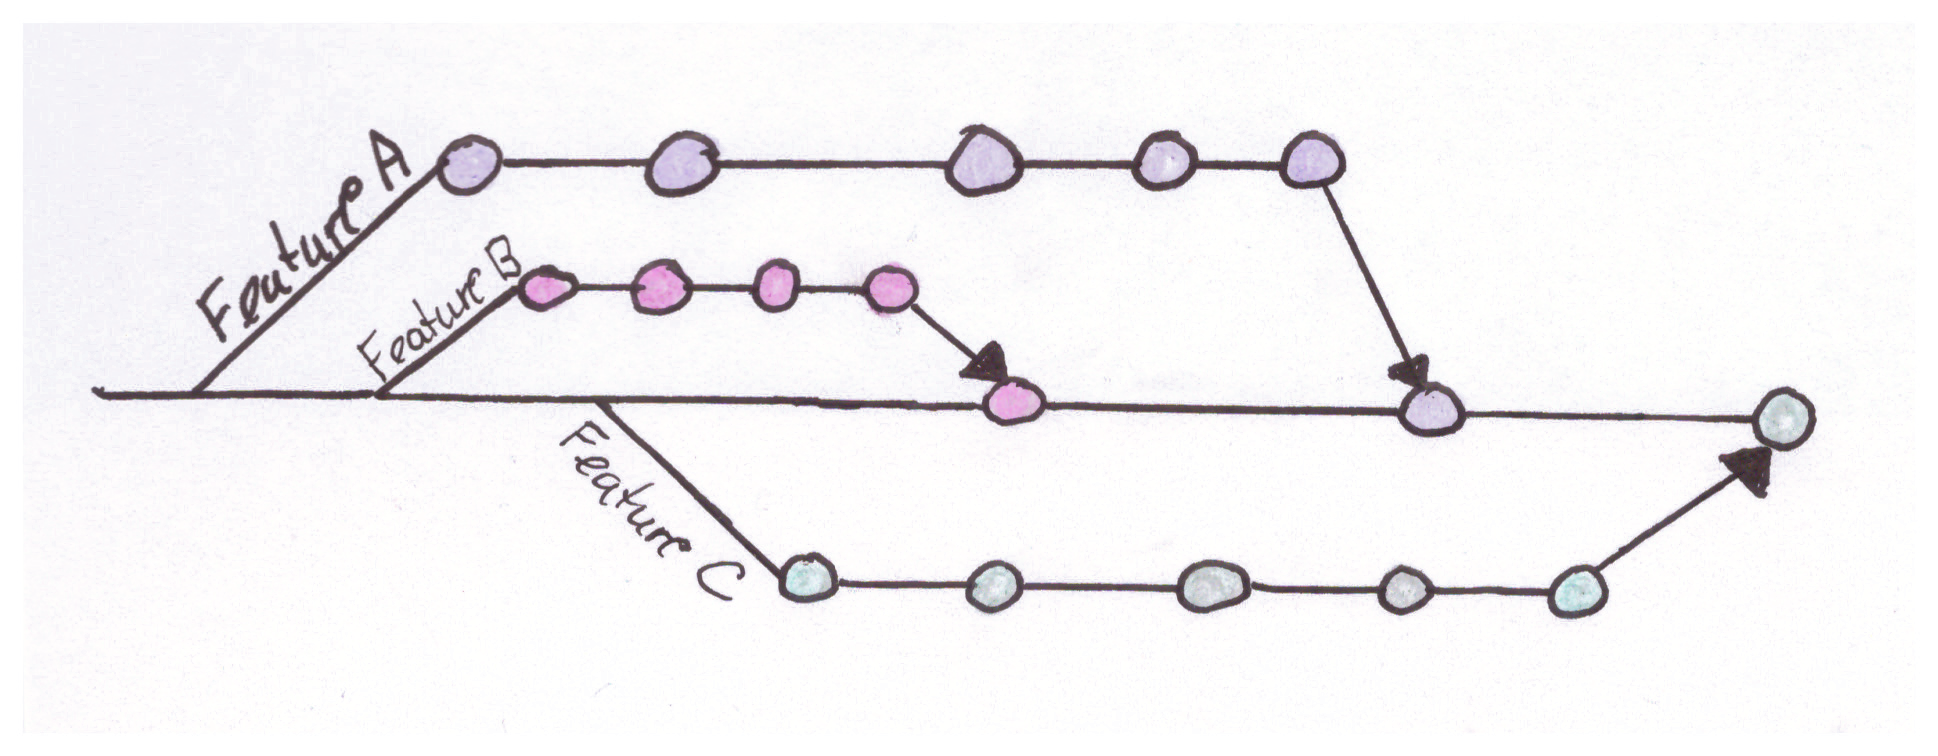 Feature A
Feature B
Feature C